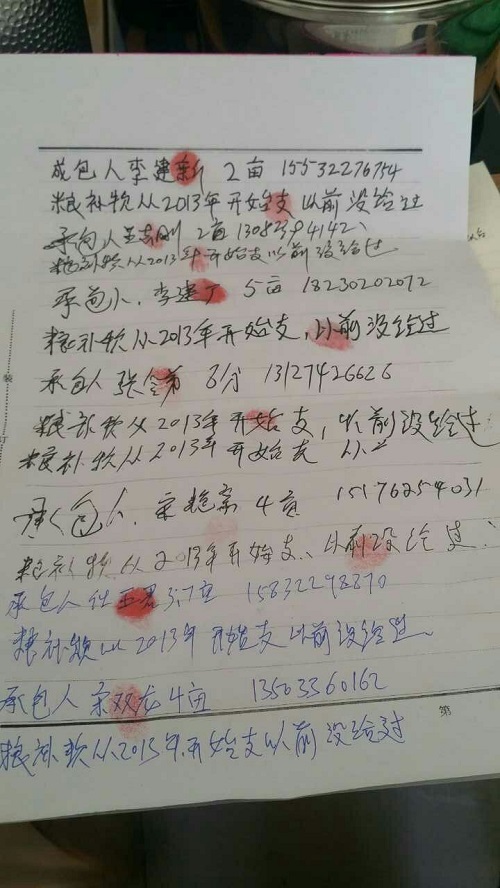 承包人李建新 2亩 15532276754
粮补款从2013年开始支 以前没给过
承包人王志刚 2亩 13082394142、
粮补款从2013年开始支以前没给过
承包人、李建广 5亩 18230202072
粮补款从2013年开始支,以前没给过
承包人 张 6分 13127426626
粮补款从2013年开始支,以前没给过
粮补款从2013年开始支 以
承包人、宋 4亩 15176254031
粮补款从2013年开始支、以前没给过.
承包人任 3.7亩 15832298870
粮补款从2013年开始支以前没给过、
承包人 宋双龙 4亩 13503360162
粮补款从2013年开始支以前没给过
装
订
第